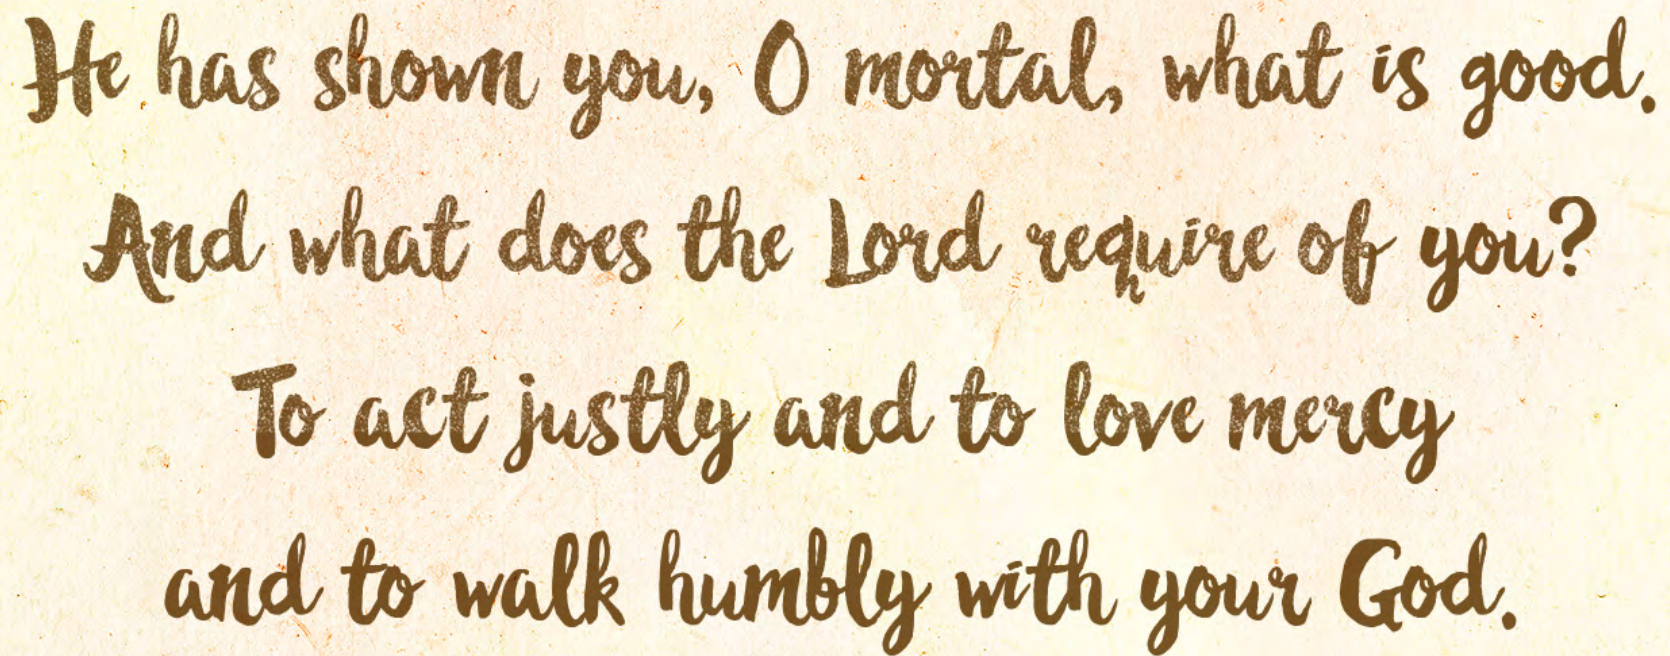 He has shown you, O mortal, what is good.
And what does the Lord require of you?
To act justly and to love mercy
and to walk humbly with your God.